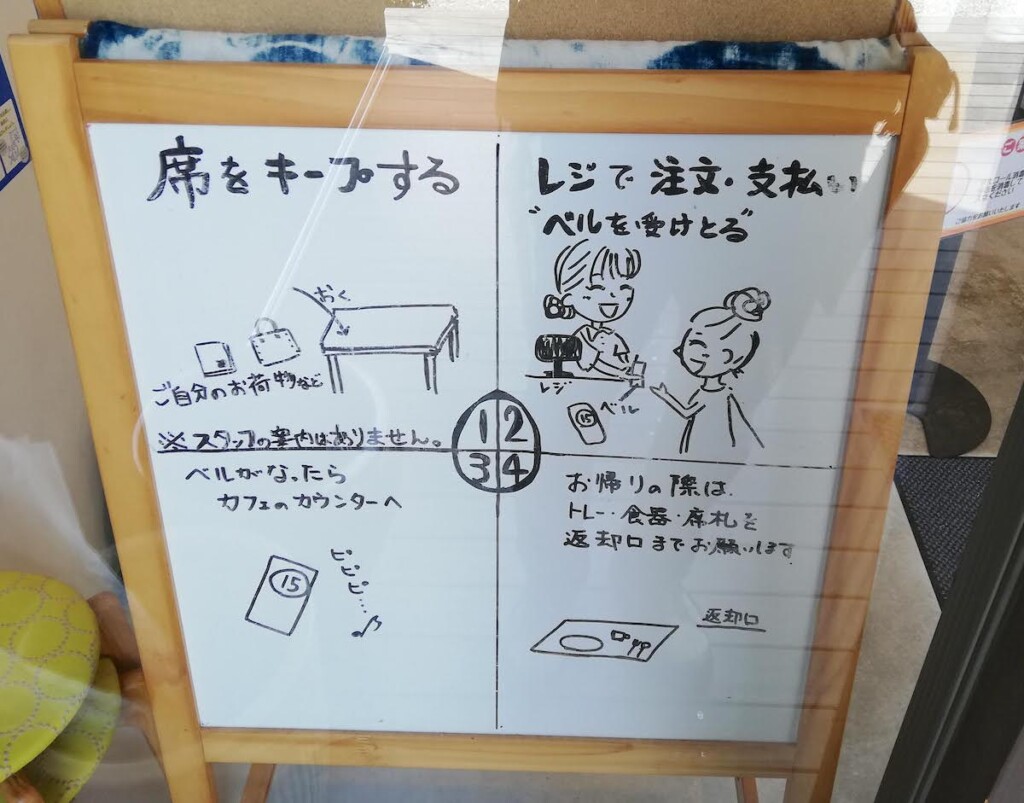 席をキープする
おく
ご自分のお荷物など
※スタッフの案内はありません。
レジで注文・支払い
"ベルを受けとる"
レジ
ベル
15
1
2
3
4
ベルがなったら
カフェのカウンターへ
15
ピピピ…♪
お帰りの際は、
トレー・食器・席札を
返却口までお願いします
返却口